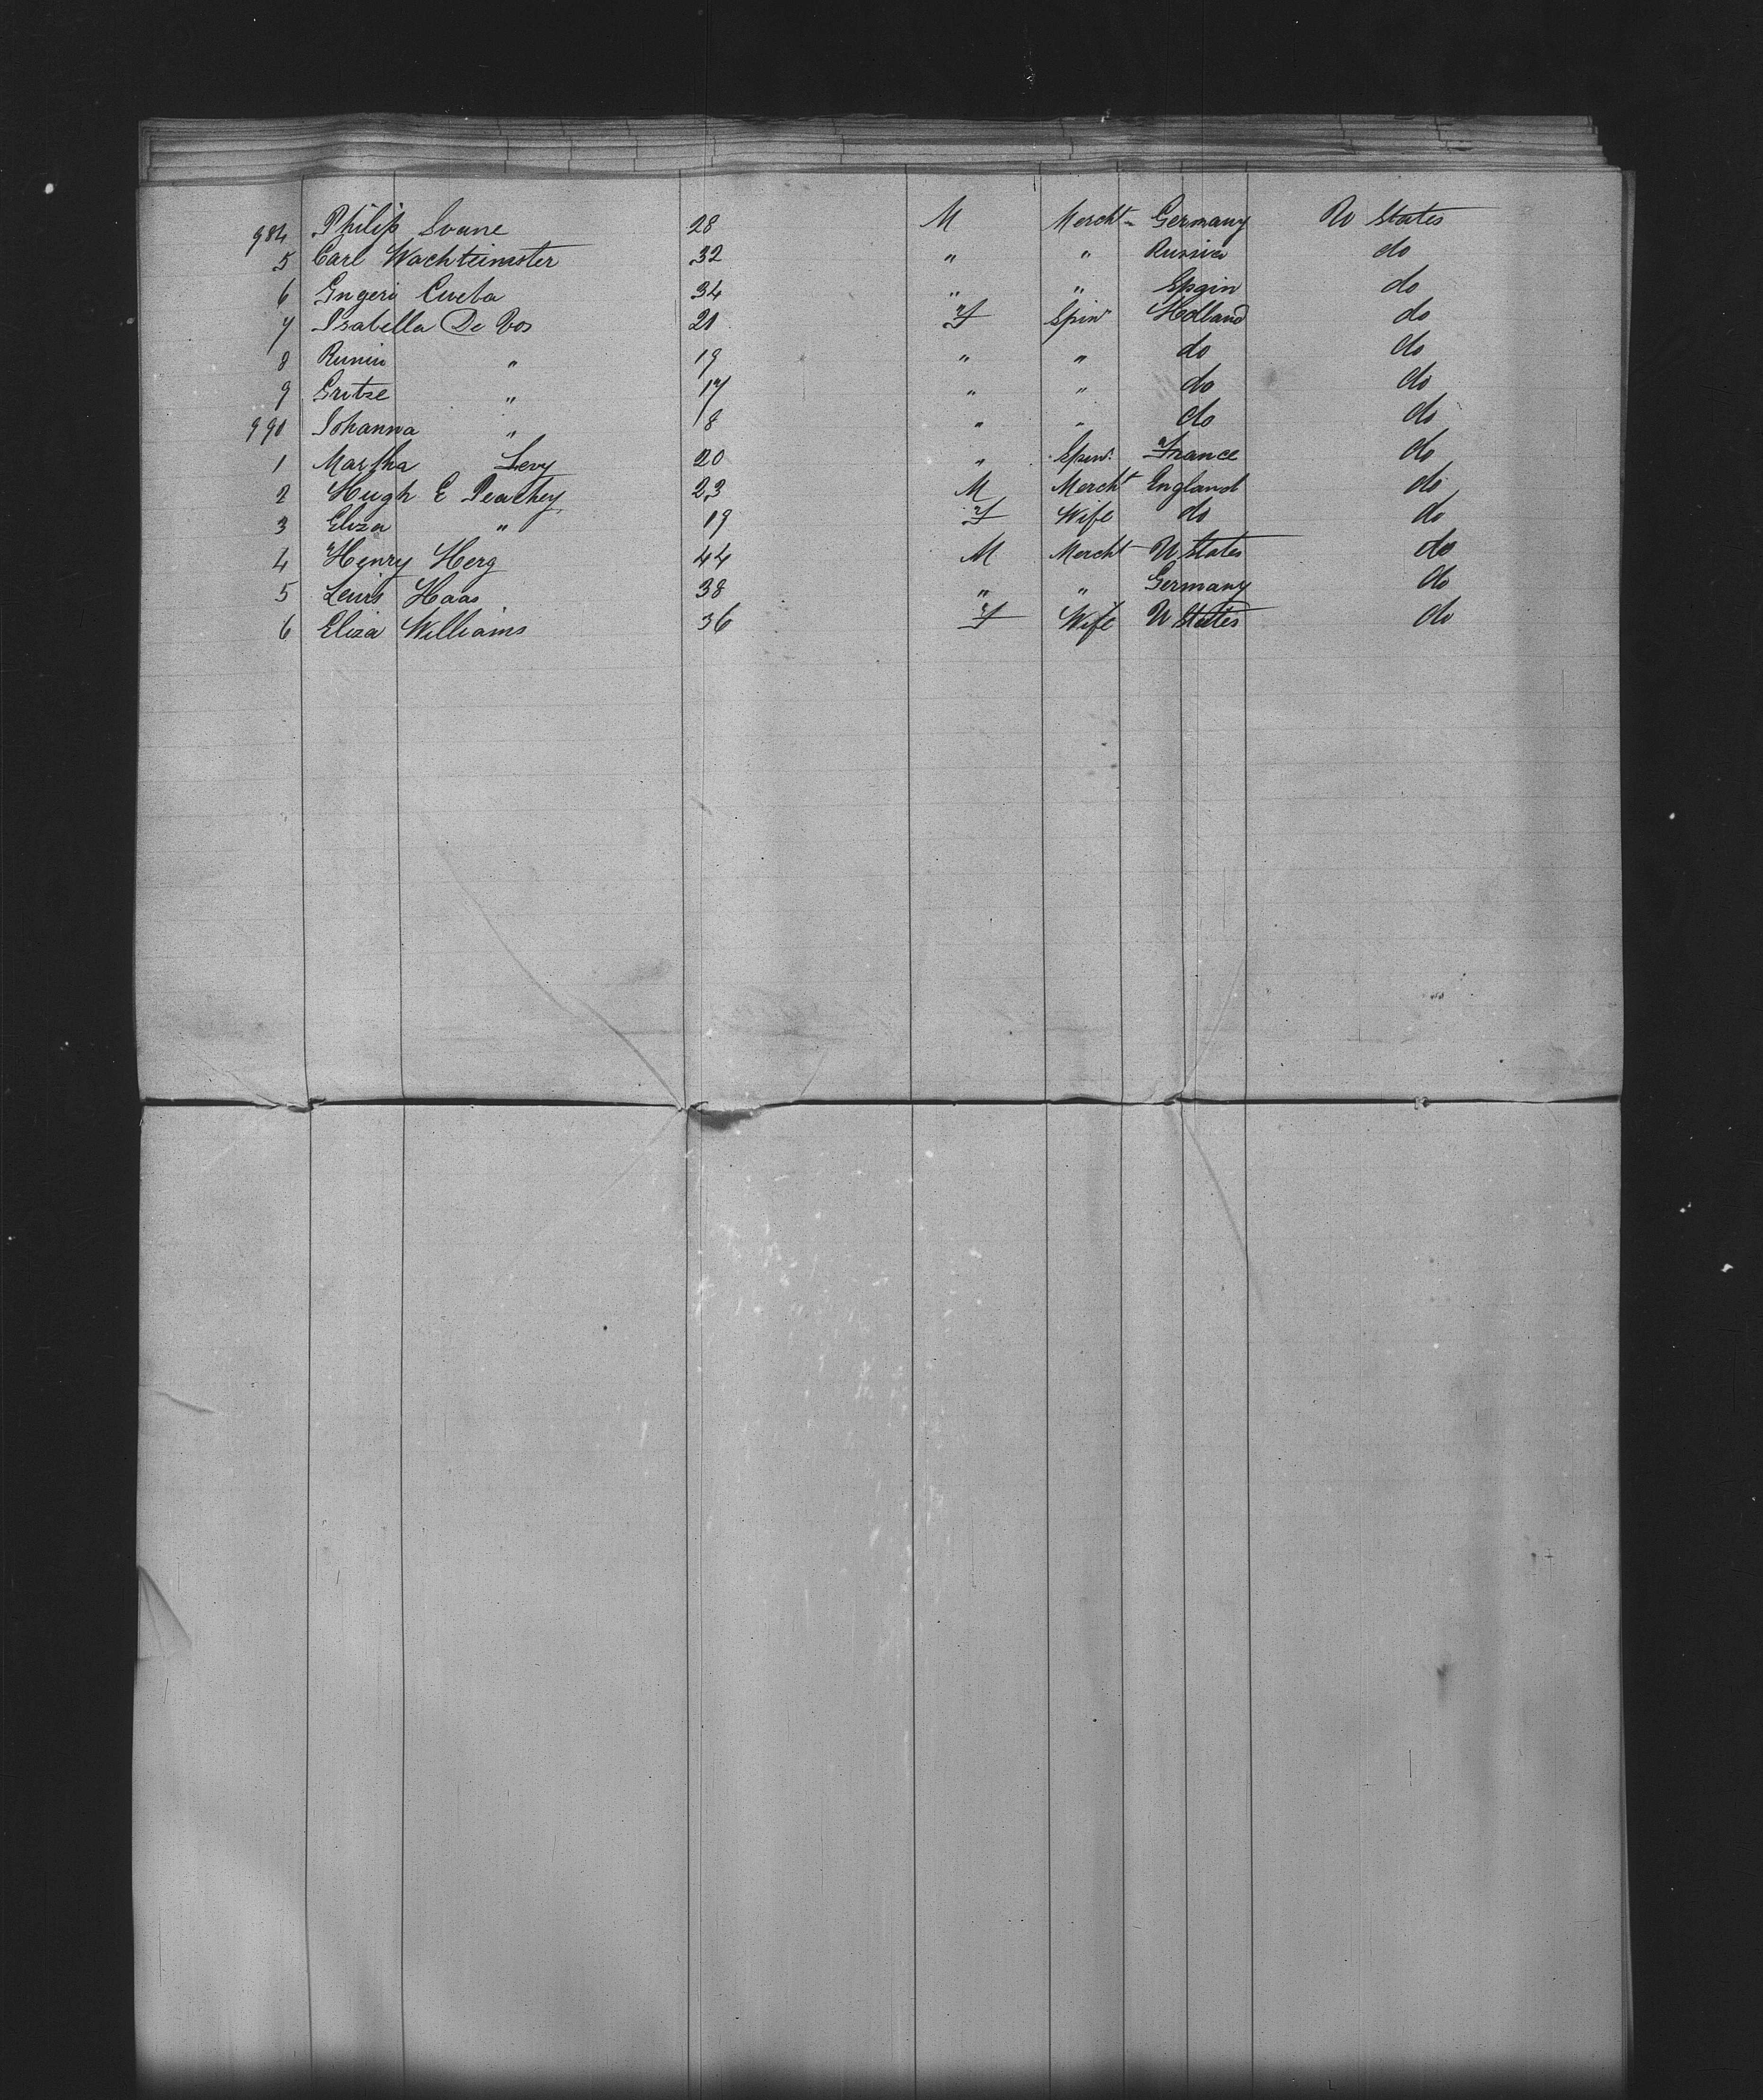 984 Philip Soane 28 M Mercht Germany U States
5 Carl Wachtimster 32 " " Russia do
6 Engeri Cueta 34 " " Spain do
7 Isabella De Vos 21 F Spinr Holland do
8 " 19 " " do do
9 Gritze " 17 " " do do
990 Johanna " 18 " " do do
1 Martha Levy 20 " Spinr France do
2 Hugh E Peachey 23 M Mercht England do
3 Eliza " 19 F Wife do do
4 Henry Herg 44 M Mercht U States do
5 Lewis Haas 38 " " Germany do
6 Eliza Williams 36 F Wife U States do